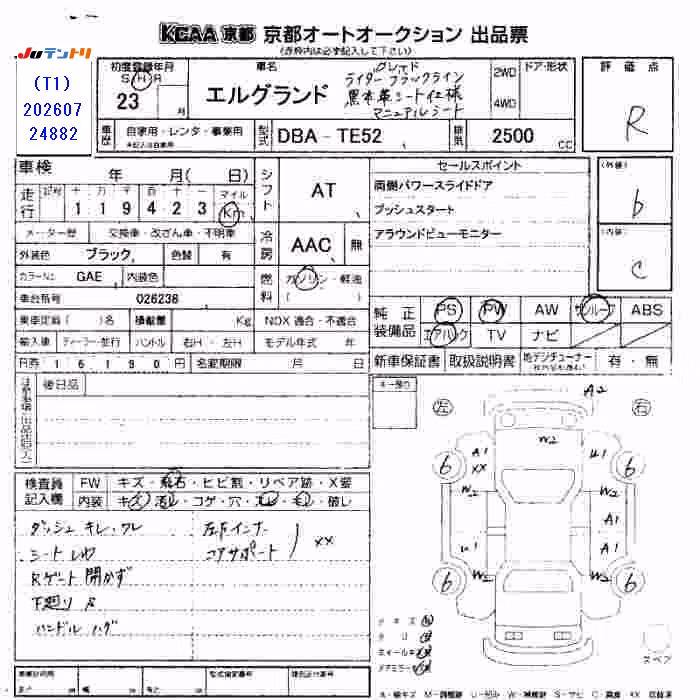 KCAA 京都 京都オートオークション 出品票
(赤枠内は必ず記入して下さい)
JUテントリ
(T1)
202607
24882
初度登録年月
S H R
23 月
車名
エルグランド
グレード
ライダー ブラックライン
黒本革シート仕様
マニュアルシート
2WD
4WD
ドア・形状
評価点
R
車歴
自家用・レンタ・事業用
型式
DBA - TE52
排気
2500 CC
車検 年 月( 日)
シフト
AT
セールスポイント
両側パワースライドドア
プッシュスタート
アラウンドビューモニター
(外装)
b
(内装)
C
走行
十 万 千 百 十
1 1 9 4 2 3
マイル
Km
メーター歴 交換車・改ざん車・不明車
外装色 ブラック 色替 有
冷房
AAC 無
カラーNo. GAE 内装色
燃料
ガソリン・軽油
( )
車台番号 026238
純正装備品
PS PW AW サンルーフ ABS
エアバック TV ナビ
乗車定員 ( )名 積載量 Kg NOX 適合・不適合
輸入車 ディーラー・並行 ハンドル 右H・左H モデル年式 年
新車保証書 取扱説明書 地デジチューナー 有・無
R券 16190円 名変期限 月 日
後日品
キー預り
左
右
A2
検査員記入欄
FW キズ・飛石・ヒビ割・リペア跡・X要
内装 キズ・汚レ・コゲ・穴・スレ・キレ・破レ
W2
A1
XX
U1
6 6
W2 W2
A1
A1
U1
W2 W2
6 6
ダッシュ キレ・ワレ
シート しわ
Rゲート 開かず
下廻り S
ハンドル ハゲ
左F インナー
コアサポート
XX
ホイールキズ
ドアミラーキズ
スペア